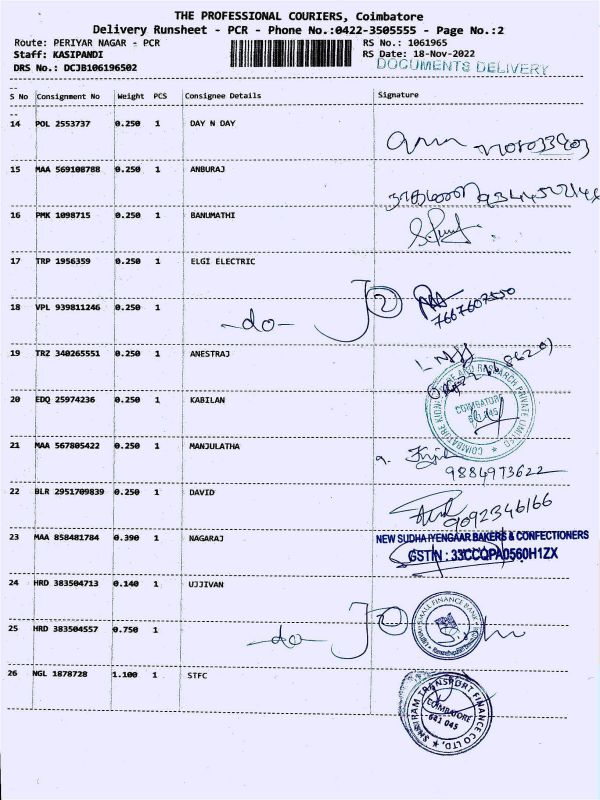 THE PROFESSIONAL COURIERS, Coimbatore
Delivery Runsheet - PCR - Phone No.:0422-3505555 - Page No.:2
Route: PERIYAR NAGAR - PCR RS No.: 1061965
Staff: KASIPANDI RS Date: 18-Nov-2022
DRS No.: DCJB106196502 DOCUMENTS DELIVERY
S No Consignment No Weight PCS Consignee Details Signature
14 POL 2553737 0.250 1 DAY N DAY
15 MAA 569108788 0.250 1 ANBURAJ
16 PMK 1098715 0.250 1 BANUMATHI
17 TRP 1956359 0.250 1 ELGI ELECTRIC
7667607550
18 VPL 939811246 0.250 1 -do- 2
19 TRZ 340265551 0.250 1 ANESTRAJ
20 EDQ 25974236 0.250 1 KABILAN
COIMBATORE KIDNEY CARE AND RESEARCH PRIVATE LIMITED
COIMBATORE
641 045
21 MAA 567805422 0.250 1 MANJULATHA
9884973622
22 BLR 2951709839 0.250 1 DAVID
9092346166
23 MAA 858481784 0.390 1 NAGARAJ NEW SUDHA IYENGAAR BAKERS & CONFECTIONERS
GSTIN : 33CCQPA0560H1ZX
24 HRD 383504713 0.140 1 UJJIVAN
SMALL FINANCE BANK
25 HRD 383504557 0.750 1 -do-
26 NGL 1878728 1.100 1 STFC
SHRIRAM TRANSPORT FINANCE CO LTD,
COIMBATORE
641 045